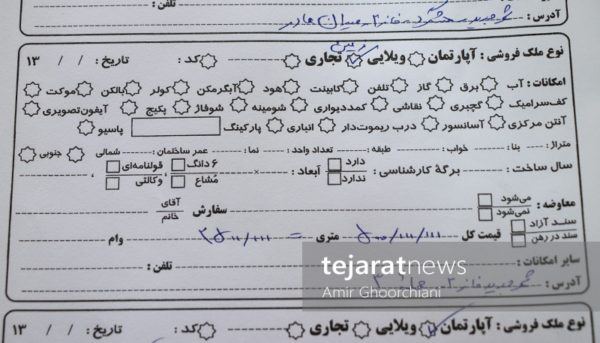 آدرس : شهر جدید هشتگرد - فاز ۲ - میدان مادر تلفن :
نوع ملک فروشی : آپارتمان ویلایی تجاری کد : تاریخ : / / ۱۳
امکانات : آب برق گاز تلفن کابینت هود آبگرمکن کولر بالکن موکت
کف‌سرامیک گچبری نقاشی کمددیواری شومینه شوفاژ پکیج آیفون‌تصویری
آنتن مرکزی آسانسور درب ریموت‌دار انباری پارکینگ پاسیو
متراژ : بنا : خواب : طبقه : تعداد واحد : نما : عمر ساختمان : شمالی جنوبی
سال ساخت : برگهٔ کارشناسی : دارد ندارد ابعاد : × ۶ دانگ مُشاع قولنامه‌ای وکالتی
معاوضه : می‌شود نمی‌شود سفارش آقای خانم
سند آزاد سند در رهن قیمت کل متری = وام
سایر امکانات :
آدرس : تلفن :
tejaratnews
Amir Ghoorchiani
نوع ملک فروشی : آپارتمان ویلایی تجاری کد : تاریخ : / / ۱۳